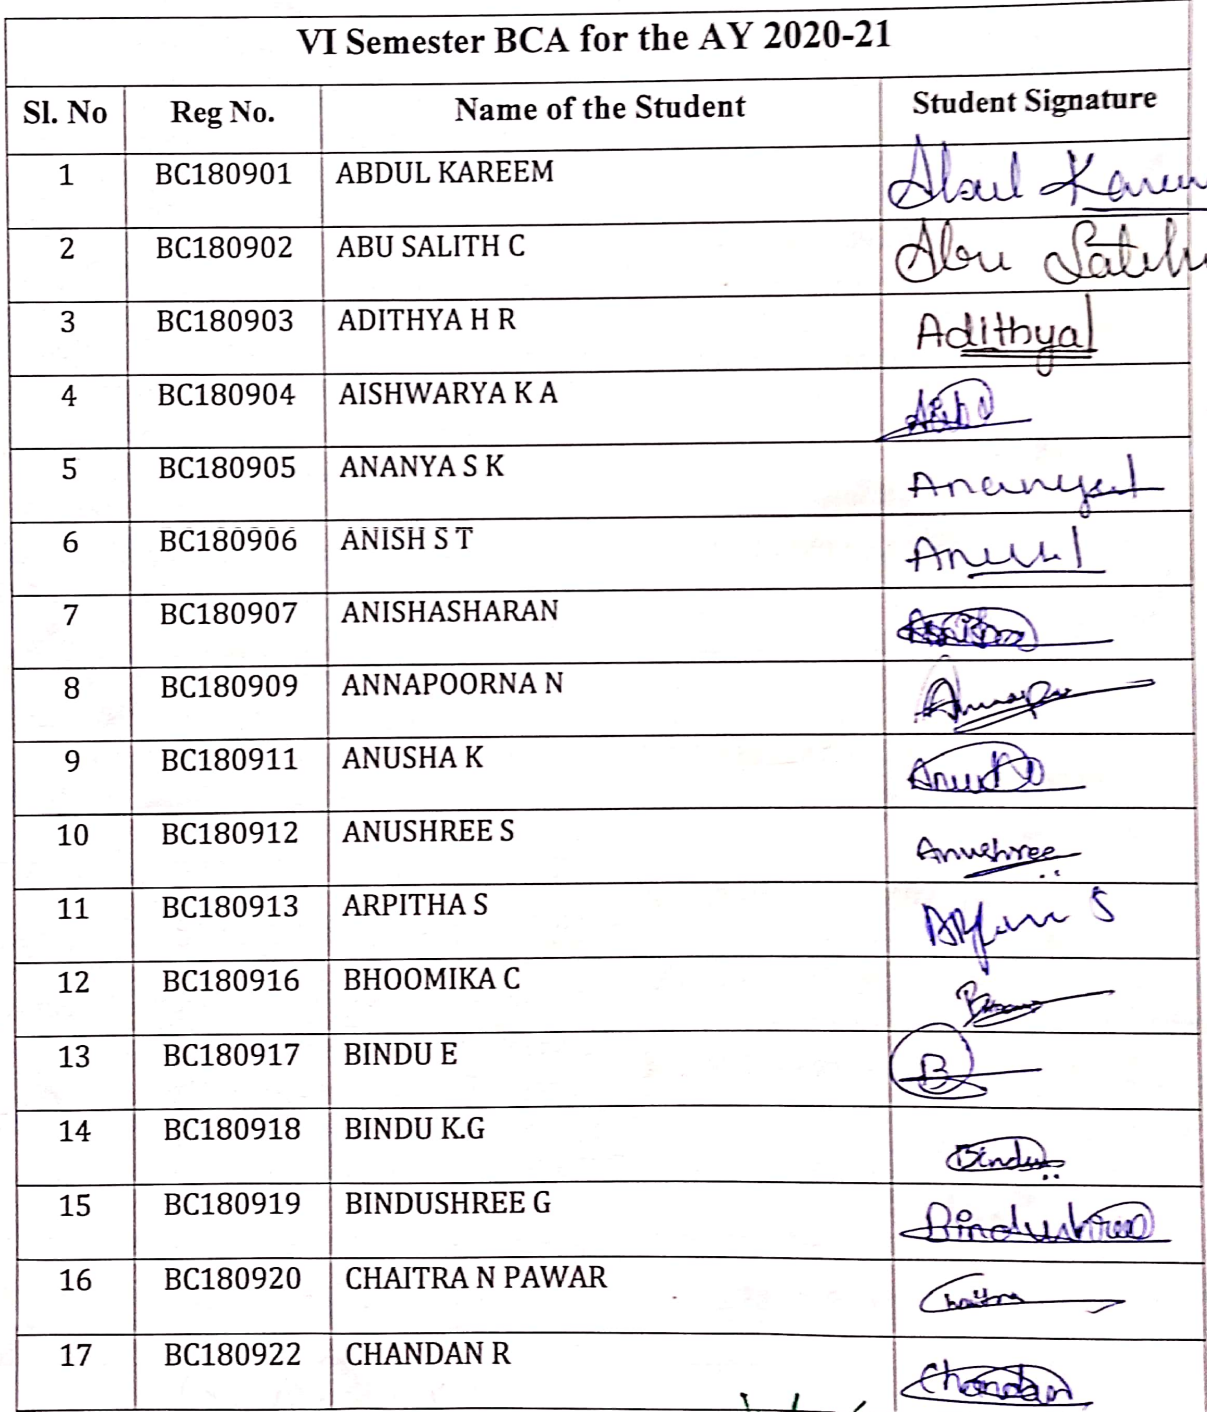 VI Semester BCA for the AY 2020-21
Sl. No Reg No. Name of the Student Student Signature
1 BC180901 ABDUL KAREEM
2 BC180902 ABU SALITH C Abu
3 BC180903 ADITHYA H R Adithya
4 BC180904 AISHWARYA K A
5 BC180905 ANANYA S K Ananya
6 BC180906 ANISH S T
7 BC180907 ANISHASHARAN
8 BC180909 ANNAPOORNA N
9 BC180911 ANUSHA K
10 BC180912 ANUSHREE S Anushree
11 BC180913 ARPITHA S
12 BC180916 BHOOMIKA C
13 BC180917 BINDU E B
14 BC180918 BINDU K.G Bindu
15 BC180919 BINDUSHREE G Bindushree
16 BC180920 CHAITRA N PAWAR Chaitra
17 BC180922 CHANDAN R Chandan